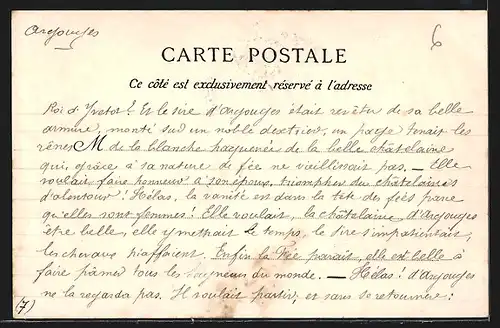 Argouges
6
CARTE POSTALE
Ce côté est exclusivement réservé à l'adresse
Roi d'Yvetot? Et le sire d'Argouges était revêtu de sa belle
armure, monté sur un noble destrier, un page tenait les
rênes M de la blanche haquenée de la belle châtelaine
qui, grâce à sa nature de fée ne vieillissait pas. — Elle
voulait faire honneur à son époux, triompher des châtelaines
d'alentour! Hélas, la vanité est dans la tête des fées parce
qu'elles sont femmes! Elle voulait, la châtelaine d'Argouges
être belle, elle y mettait le temps, le sire s'impatientait,
les chevaux piaffaient. Enfin la Fée paraît, elle est belle à
faire pâmer tous les seigneurs du monde. — Hélas! d'Argouges
ne la regarda pas. Il voulait partir, et sans se retourner:
(7)